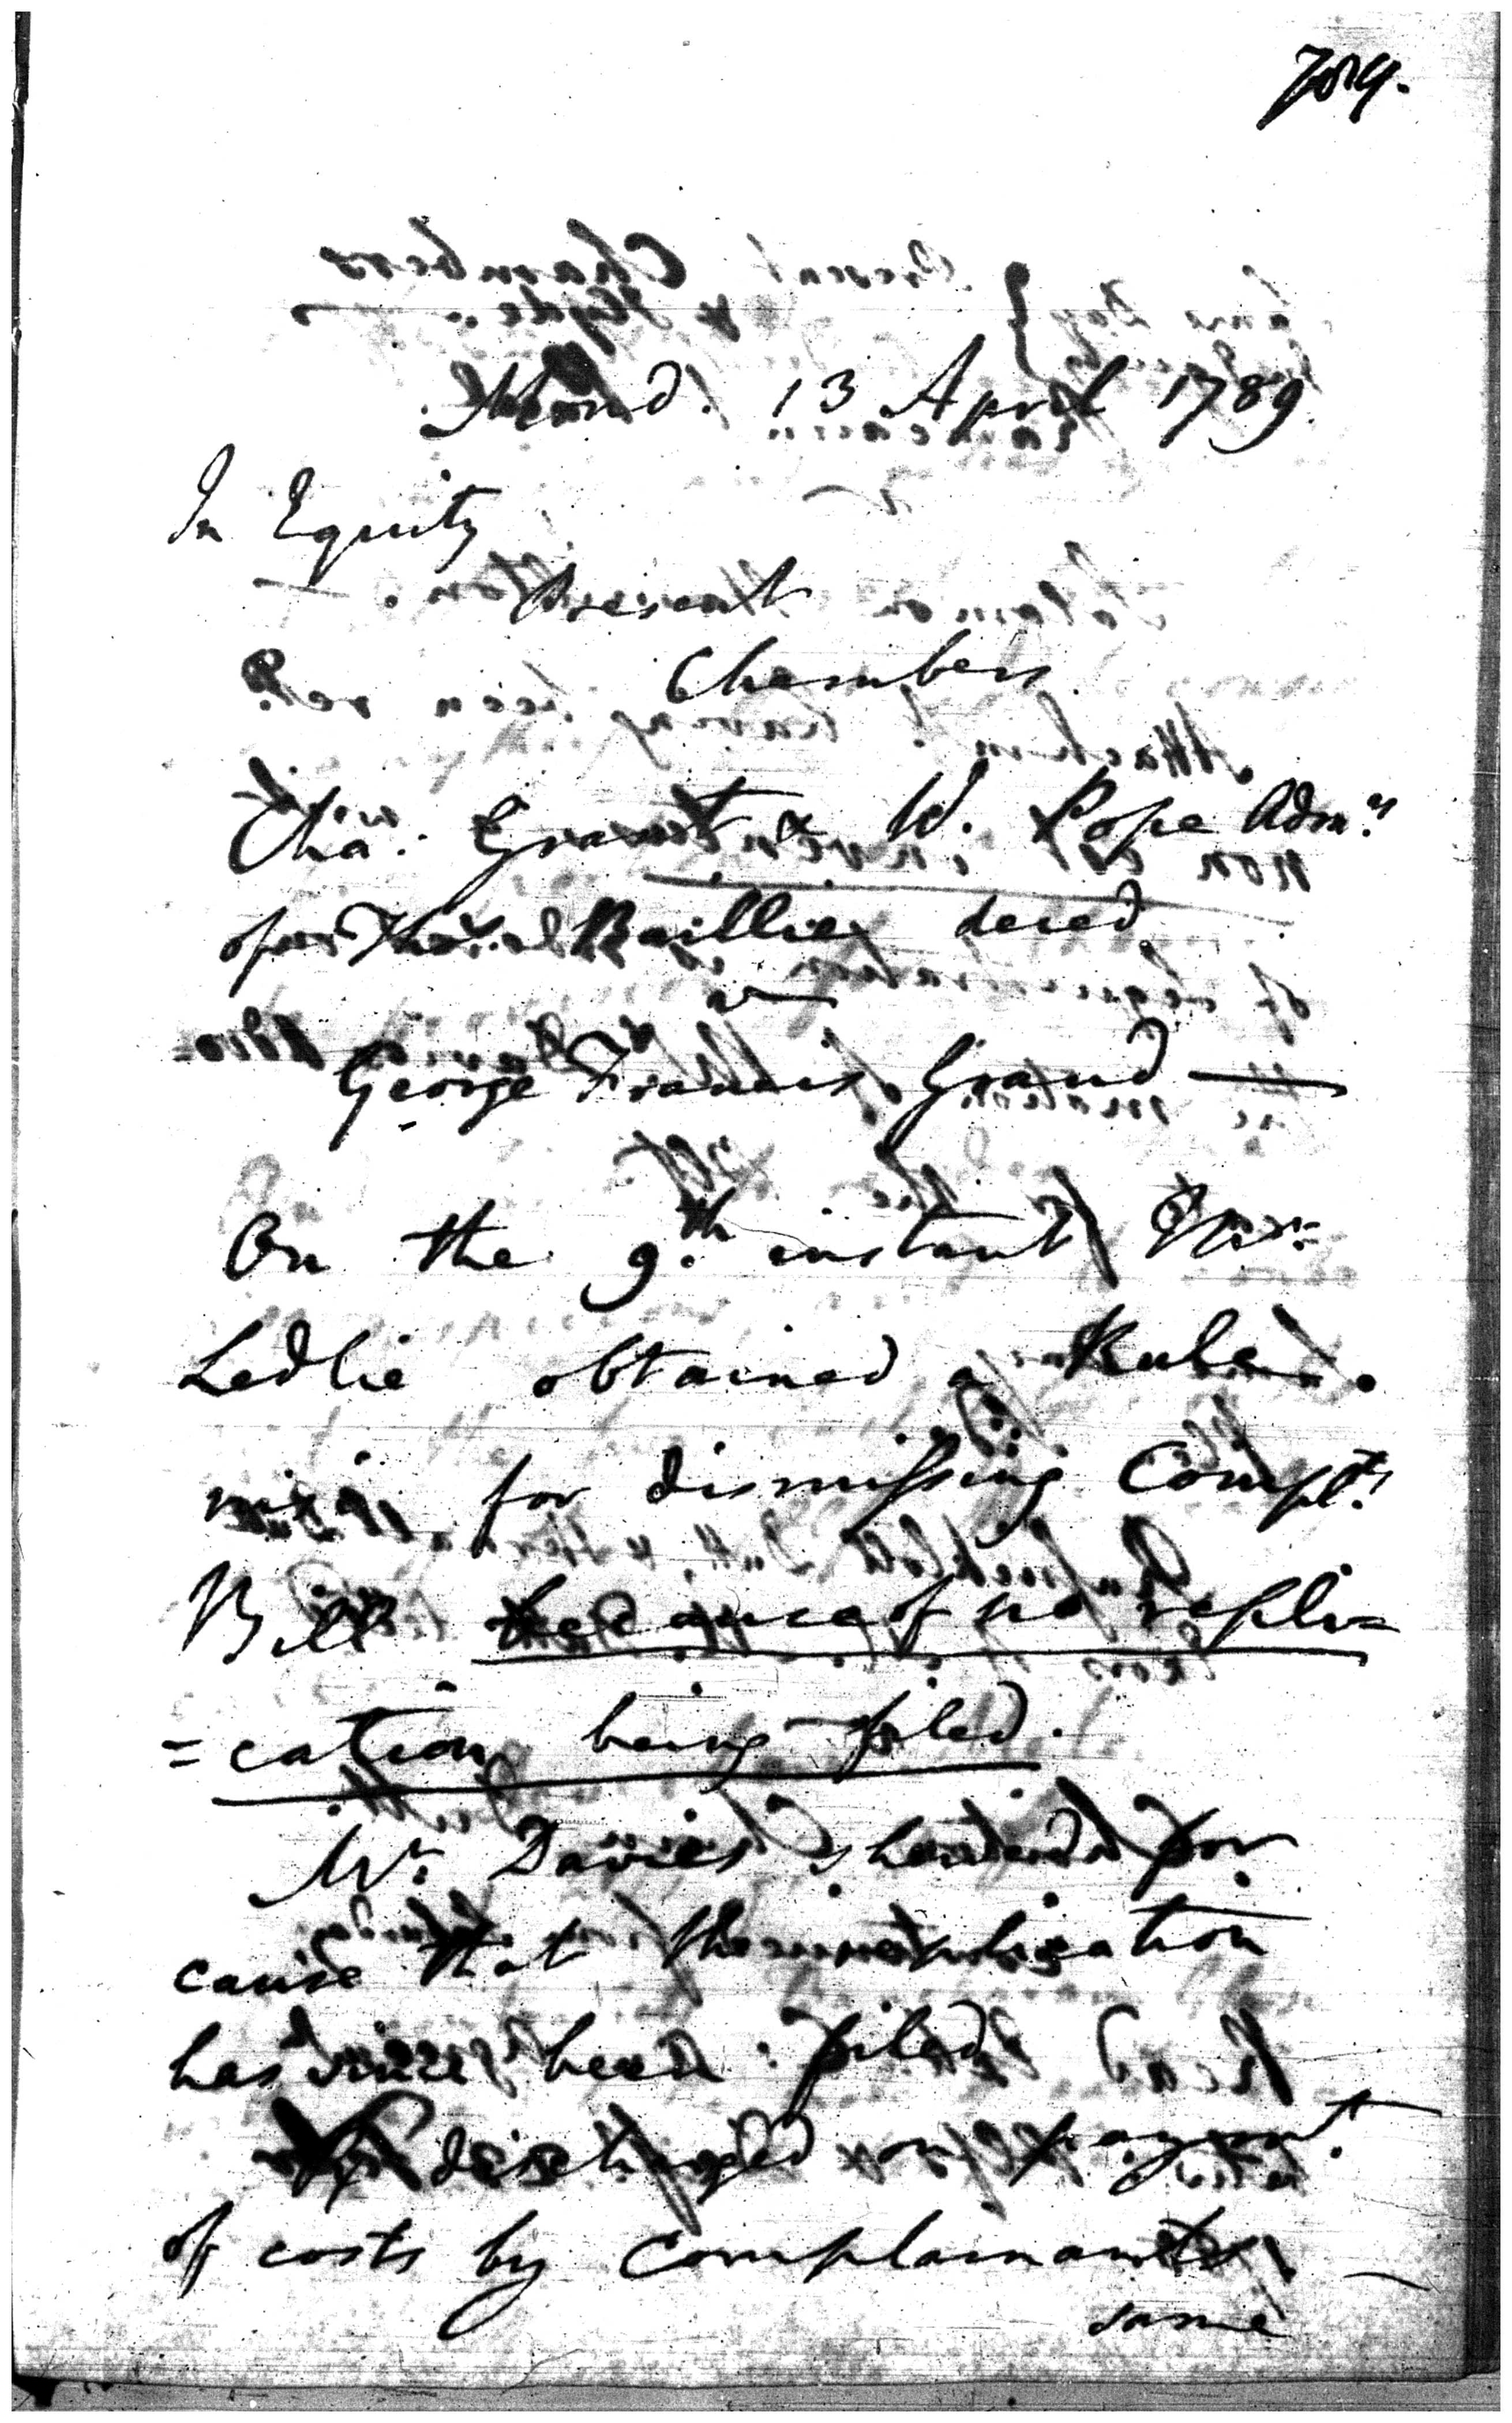 Mond. 13 April 1789
In Equity
Present
Chambers
Cha. Grant & W. Pope Adm.rs
of Tho.s Baillie deced.
v
George Francis Grand —
On the 9.th instant Mr.
Ledlie obtained a Rule
nisi for dismissing Compl.ts
Bill because of no repli=
=cation being filed.
Mr. Davies shewed for
cause that the replication
has since been filed
discharged on paymt.
of costs by Complainants —
same